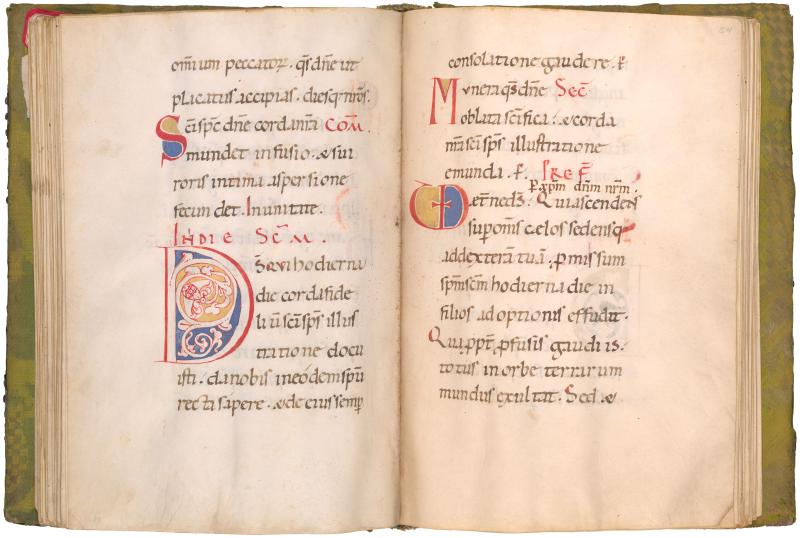 omnium peccatoꝝ. qs dne ut
placatus accipias. diesq nrōs.
Sci sps dne corda nrā COM̄.
mundet infusio. & sui
roris intima aspersione
fecundet. In unitate.
IN DIE SC̄M.
Ds̄ qui hodierna
die corda fide
liū sci sps illus
tratione docu
isti. da nobis in eodem spū
recta sapere. & de eius semp
consolatione gaudere. P̄
Munera qs dne SEC̄
oblata scīfica. & corda
nrā sci sps illustratione
emunda. P̄. PREF̄.
P xpm dnm nrm.
aet̄ne ds̄. Qui ascendens
sup oms celos sedensq
ad dexterā tuā. pmissum
spm scm hodierna die in
filios adoptionis effudit.
Qua ppt pfusis gaudiis.
totus in orbe terrarum
mundus exultat. Sed &